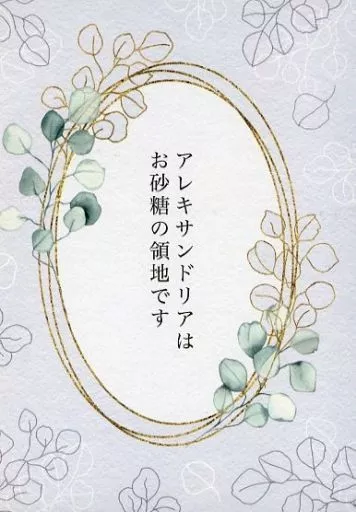 アレキサンドリアは
お砂糖の領地です